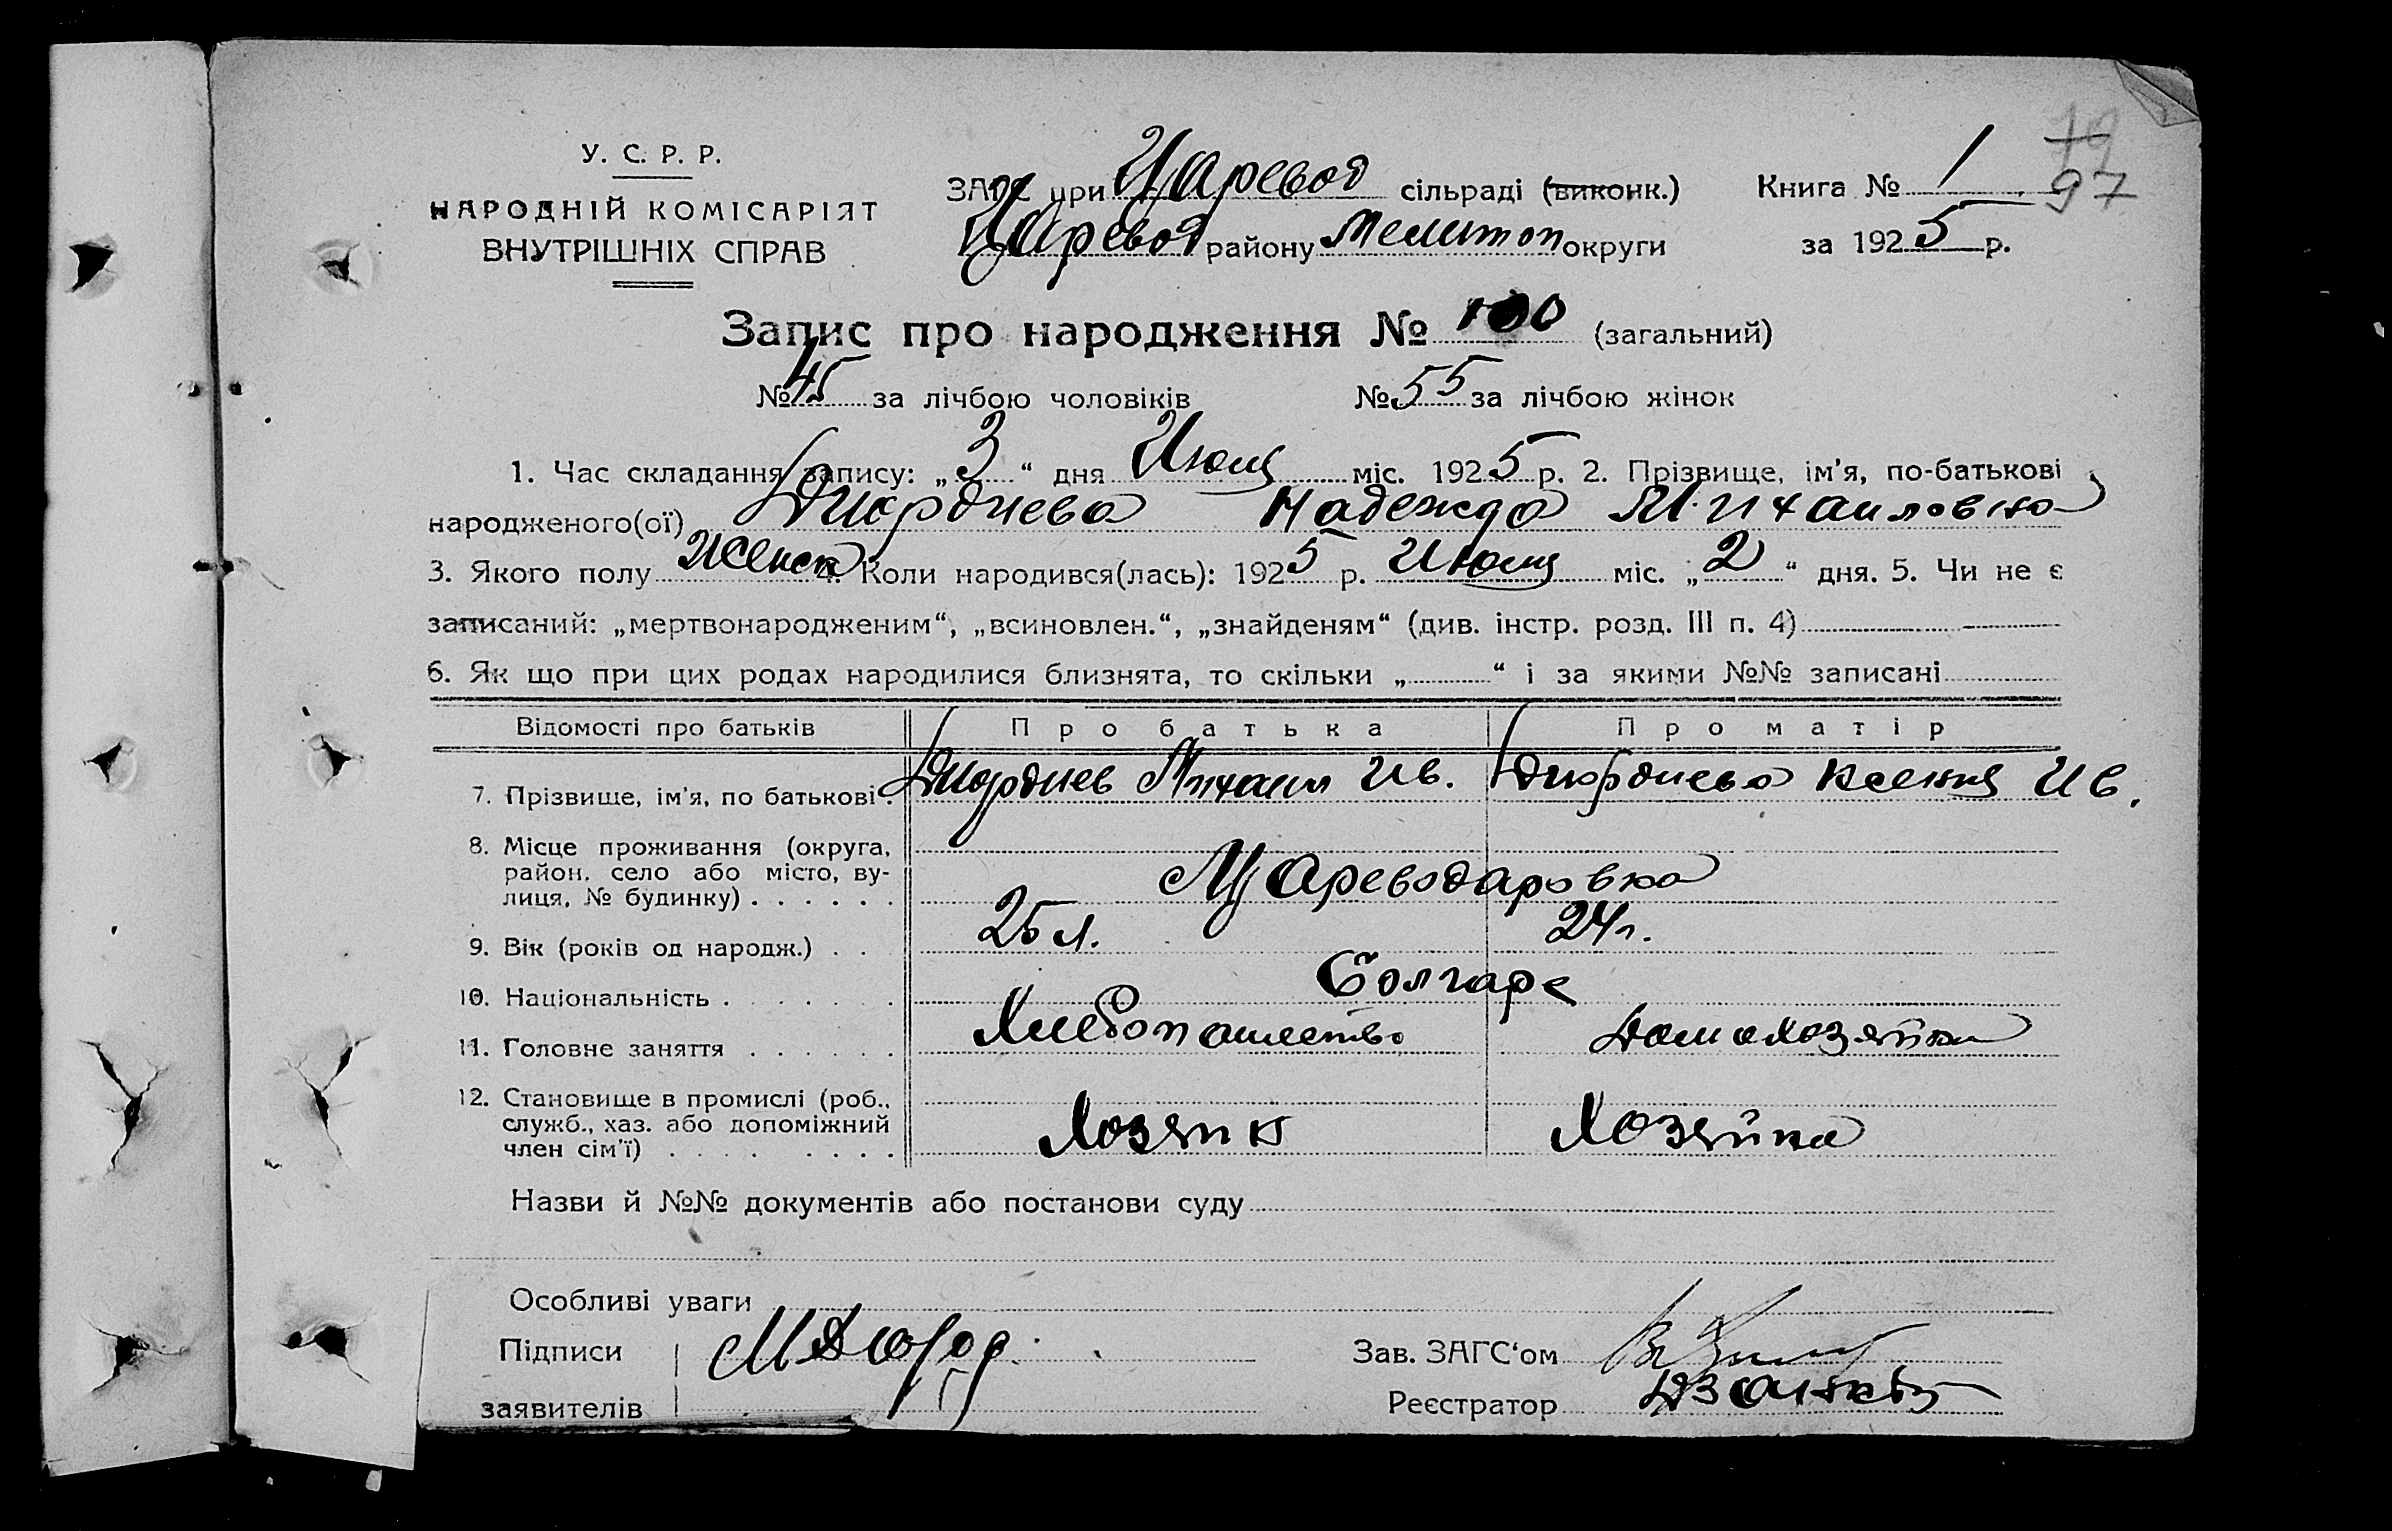 79
97
У. С. Р. Р.
НАРОДНІЙ КОМІСАРІЯТ
ВНУТРІШНІХ СПРАВ
ЗАГС при Царевод сільраді (виконк.) Книга № 1
Царевод району Мелитоп округи за 1925 р.
Запис про народження № 100 (загальний)
№ 45 за лічбою чоловіків № 55 за лічбою жінок
1. Час складання запису: „3“ дня Июля міс. 1925 р. 2. Прізвище, ім'я, по-батькові
народженого(ої) Дюрдиева Надежда Михаиловна
3. Якого полу Женск 4. Коли народився(лась): 1925 р. Июля міс. „2“ дня. 5. Чи не є
записаний: „мертвонародженим“, „всиновлен.“, „знайденям“ (див. інстр. розд. III п. 4)
6. Як що при цих родах народилися близнята, то скільки „ “ і за якими №№ записані
Відомості про батьків Про батька Про матір
7. Прізвище, ім'я, по батькові . Дюрдиев Михаил Ив. Дюрдиева Ксения Ив.
8. Місце проживання (округа,
район, село або місто, ву-
лиця, № будинку) . . . . . . Цареводаровка
9. Вік (років од народж.) . . 25 л. 24 г.
10. Національність . . . . . Болгаре
11. Головне заняття . . . . . . Хлебопашество Домохозяйка
12. Становище в промислі (роб.,
служб., хаз. або допоміжний
член сім'ї) . . . . . . . . Хозяин Хозяйка
Назви й №№ документів або постанови суду
Особливі уваги
Підписи М Дюрд. Зав. ЗАГС'ом
заявителів Реєстратор